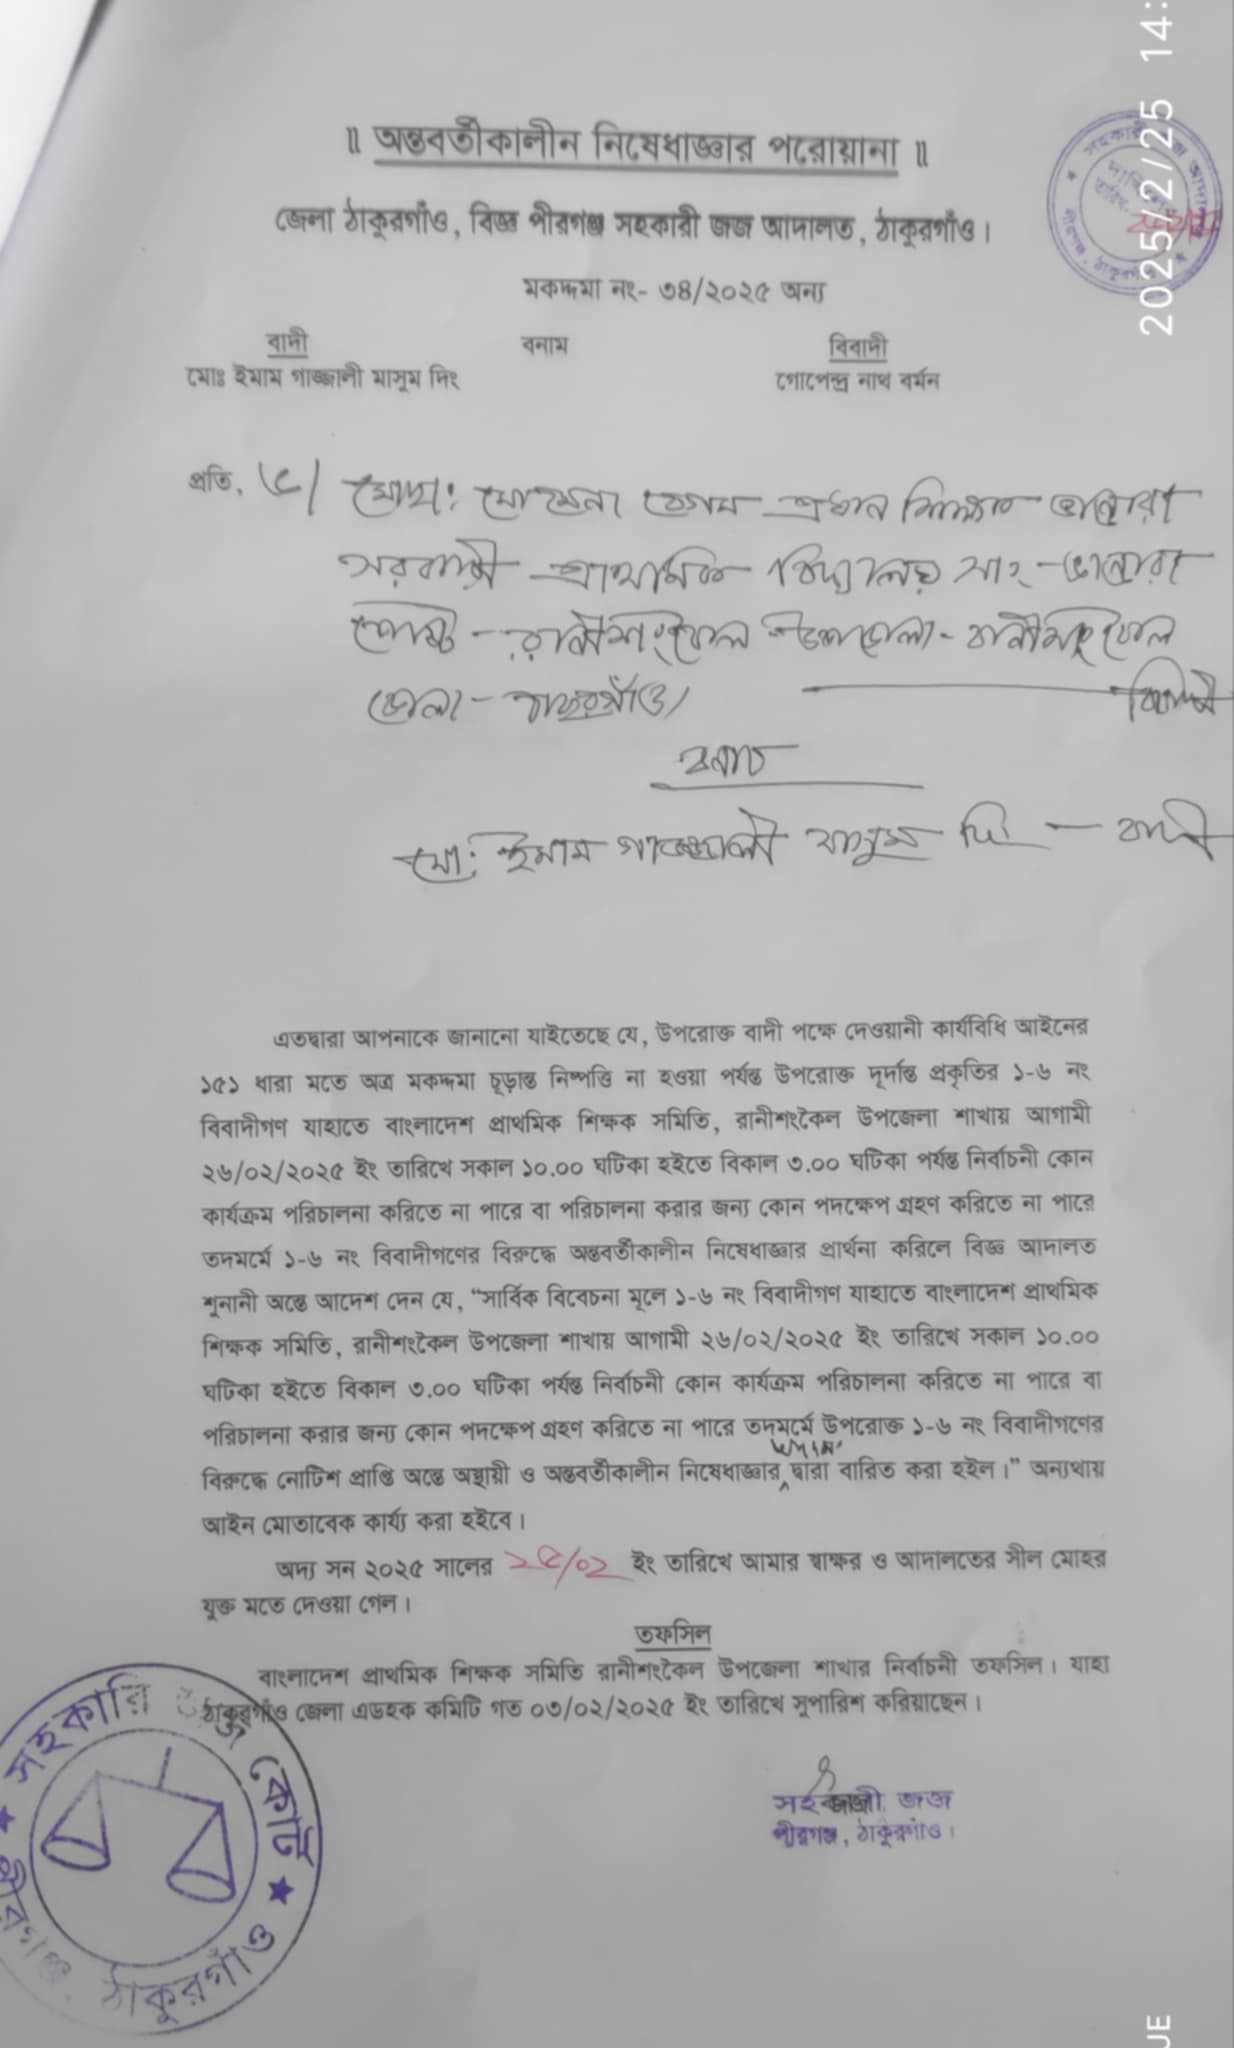 ॥ অন্তবর্তীকালীন নিষেধাজ্ঞার পরোয়ানা ॥
জেলা ঠাকুরগাঁও, বিজ্ঞ পীরগঞ্জ সহকারী জজ আদালত, ঠাকুরগাঁও।
মকদ্দমা নং- ৩৪/২০২৫ অন্য
বাদী বনাম বিবাদী
মোঃ ইমাম গাজ্জালী মাসুম দিং গোপেন্দ্র নাথ বর্মন
প্রতি, ৬। মোছা: মোমেনা বেগম প্রধান শিক্ষক ভান্ডারা
সরকারী প্রাথমিক বিদ্যালয় সাং-ভান্ডারা
পোষ্ট - রানীশংকৈল উপজেলা- রানীশংকৈল
জেলা- ঠাকুরগাঁও। বিবাদী
বনাম
মো: ইমাম গাজ্জালী মাসুম দিং — বাদী
এতদ্বারা আপনাকে জানানো যাইতেছে যে, উপরোক্ত বাদী পক্ষে দেওয়ানী কার্যবিধি আইনের
১৫১ ধারা মতে অত্র মকদ্দমা চূড়ান্ত নিষ্পত্তি না হওয়া পর্যন্ত উপরোক্ত দূর্দান্ত প্রকৃতির ১-৬ নং
বিবাদীগণ যাহাতে বাংলাদেশ প্রাথমিক শিক্ষক সমিতি, রানীশংকৈল উপজেলা শাখায় আগামী
২৬/০২/২০২৫ ইং তারিখে সকাল ১০.০০ ঘটিকা হইতে বিকাল ৩.০০ ঘটিকা পর্যন্ত নির্বাচনী কোন
কার্যক্রম পরিচালনা করিতে না পারে বা পরিচালনা করার জন্য কোন পদক্ষেপ গ্রহণ করিতে না পারে
তদমর্মে ১-৬ নং বিবাদীগণের বিরুদ্ধে অন্তবর্তীকালীন নিষেধাজ্ঞার প্রার্থনা করিলে বিজ্ঞ আদালত
শুনানী অন্তে আদেশ দেন যে, "সার্বিক বিবেচনা মূলে ১-৬ নং বিবাদীগণ যাহাতে বাংলাদেশ প্রাথমিক
শিক্ষক সমিতি, রানীশংকৈল উপজেলা শাখায় আগামী ২৬/০২/২০২৫ ইং তারিখে সকাল ১০.০০
ঘটিকা হইতে বিকাল ৩.০০ ঘটিকা পর্যন্ত নির্বাচনী কোন কার্যক্রম পরিচালনা করিতে না পারে বা
পরিচালনা করার জন্য কোন পদক্ষেপ গ্রহণ করিতে না পারে তদমর্মে উপরোক্ত ১-৬ নং বিবাদীগণের
বিরুদ্ধে নোটিশ প্রাপ্তি অন্তে অস্থায়ী ও অন্তবর্তীকালীন নিষেধাজ্ঞার দ্বারা বারিত করা হইল।" অন্যথায়
আইন মোতাবেক কার্য্য করা হইবে।
অদ্য সন ২০২৫ সালের ২৫/০২ ইং তারিখে আমার স্বাক্ষর ও আদালতের সীল মোহর
যুক্ত মতে দেওয়া গেল।
তফসিল
বাংলাদেশ প্রাথমিক শিক্ষক সমিতি রানীশংকৈল উপজেলা শাখার নির্বাচনী তফসিল। যাহা
ঠাকুরগাঁও জেলা এডহক কমিটি গত ০৩/০২/২০২৫ ইং তারিখে সুপারিশ করিয়াছেন।
সহকারী জজ
পীরগঞ্জ, ঠাকুরগাঁও।
সহকারি জজ কোর্ট
পীরগঞ্জ, ঠাকুরগাঁও
2025/2/25 14: